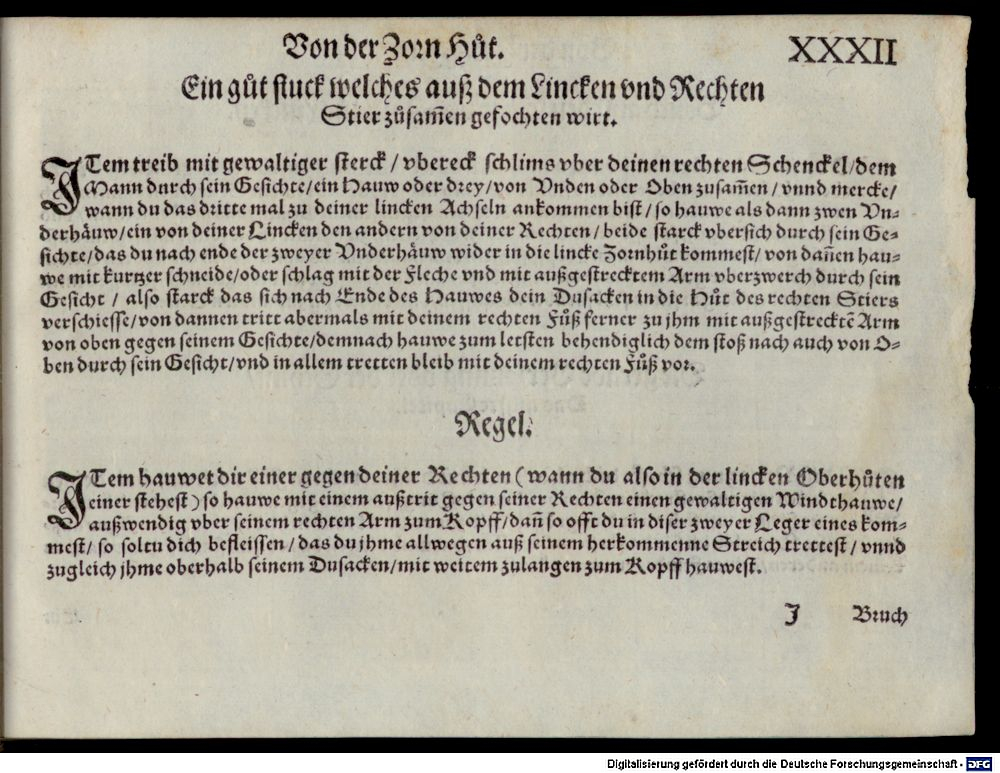 Von der Zorn Hůt.
XXXII
Ein gůt stuck welches auß dem Lincken vnd Rechten
Stier zůsam̃en gefochten wirt.
ITem treib mit gewaltiger sterck / vbereck schlims vber deinen rechten Schenckel / dem
Mann durch sein Gesichte / ein Hauw oder drey / von Vnden oder Oben zusam̃en / vnnd mercke /
wann du das dritte mal zu deiner lincken Achseln ankommen bist / so hauwe als dann zwen Vn⸗
derhäuw / ein von deiner Lincken den andern von deiner Rechten / beide starck vbersich durch sein Ge⸗
sichte / das du nach ende der zweyer Vnderhäuw wider in die lincke Zornhůt kommest / von dañen hau⸗
we mit kurtzer schneide / oder schlag mit der Fleche vnd mit außgestrecktem Arm vberzwerch durch sein
Gesicht / also starck das sich nach Ende des Hauwes dein Dusacken in die Hůt des rechten Stiers
verschiesse / von dannen tritt abermals mit deinem rechten Fůß ferner zu jhm mit außgestrecktẽ Arm
von oben gegen seinem Gesichte / demnach hauwe zum letsten behendiglich dem stoß nach auch von O⸗
ben durch sein Gesicht / vnd in allem tretten bleib mit deinem rechten Fůß vor.
Regel.
ITem hauwet dir einer gegen deiner Rechten ( wann du also in der lincken Oberhůten
einer stehest ) so hauwe mit einem außtrit gegen seiner Rechten einen gewaltigen Windthauwe /
außwendig vber seinem rechten Arm zum Kopff / dañ so offt du in diser zweyer Leger eines kom⸗
mest / so soltu dich befleissen / das du jhme allwegen auß seinem herkommenne Streich trettest / vnnd
zugleich jhme oberhalb seinem Dusacken / mit weitem zulangen zum Kopff hauwest.
J Bruch
Digitalisierung gefördert durch die Deutsche Forschungsgemeinschaft - DFG